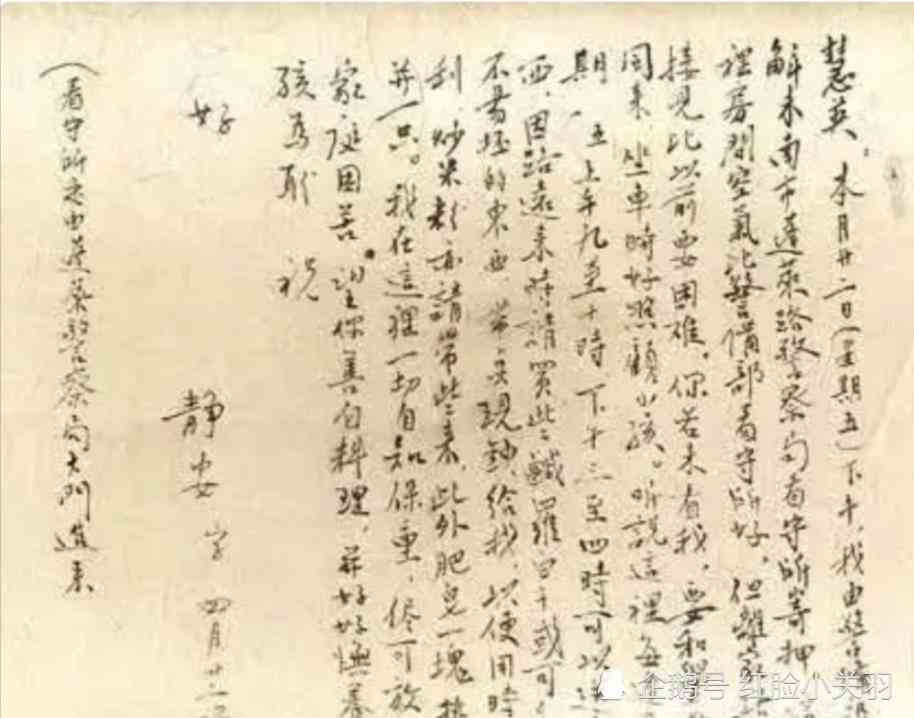 慧英：本月廿二日（星期五）下午，我由警備
解来南市蓬萊路警察局看守所寄押
裡房間空氣比警備部看守所好，但離家
接見比以前要困难。你若来看我，要和
同来，坐車時好照顧小孩。听説這裡每
期一、五上午九至十時下午三至四時可以
西，因路遠来時請買些鹹羅蔔干或可
不易壞的東西 帶
现鈔给我，以便用時
利，炒米粉亦請带些来，此外肥皂一塊
并一只。我在這裡一切自知保重，倷可放
家庭困苦。望你善自料理，并好好撫養
孩為盼 祝
好
静安 字 四月廿二
（看守所是由蓬萊警察局大門進来
企鹅号 红脸小关羽